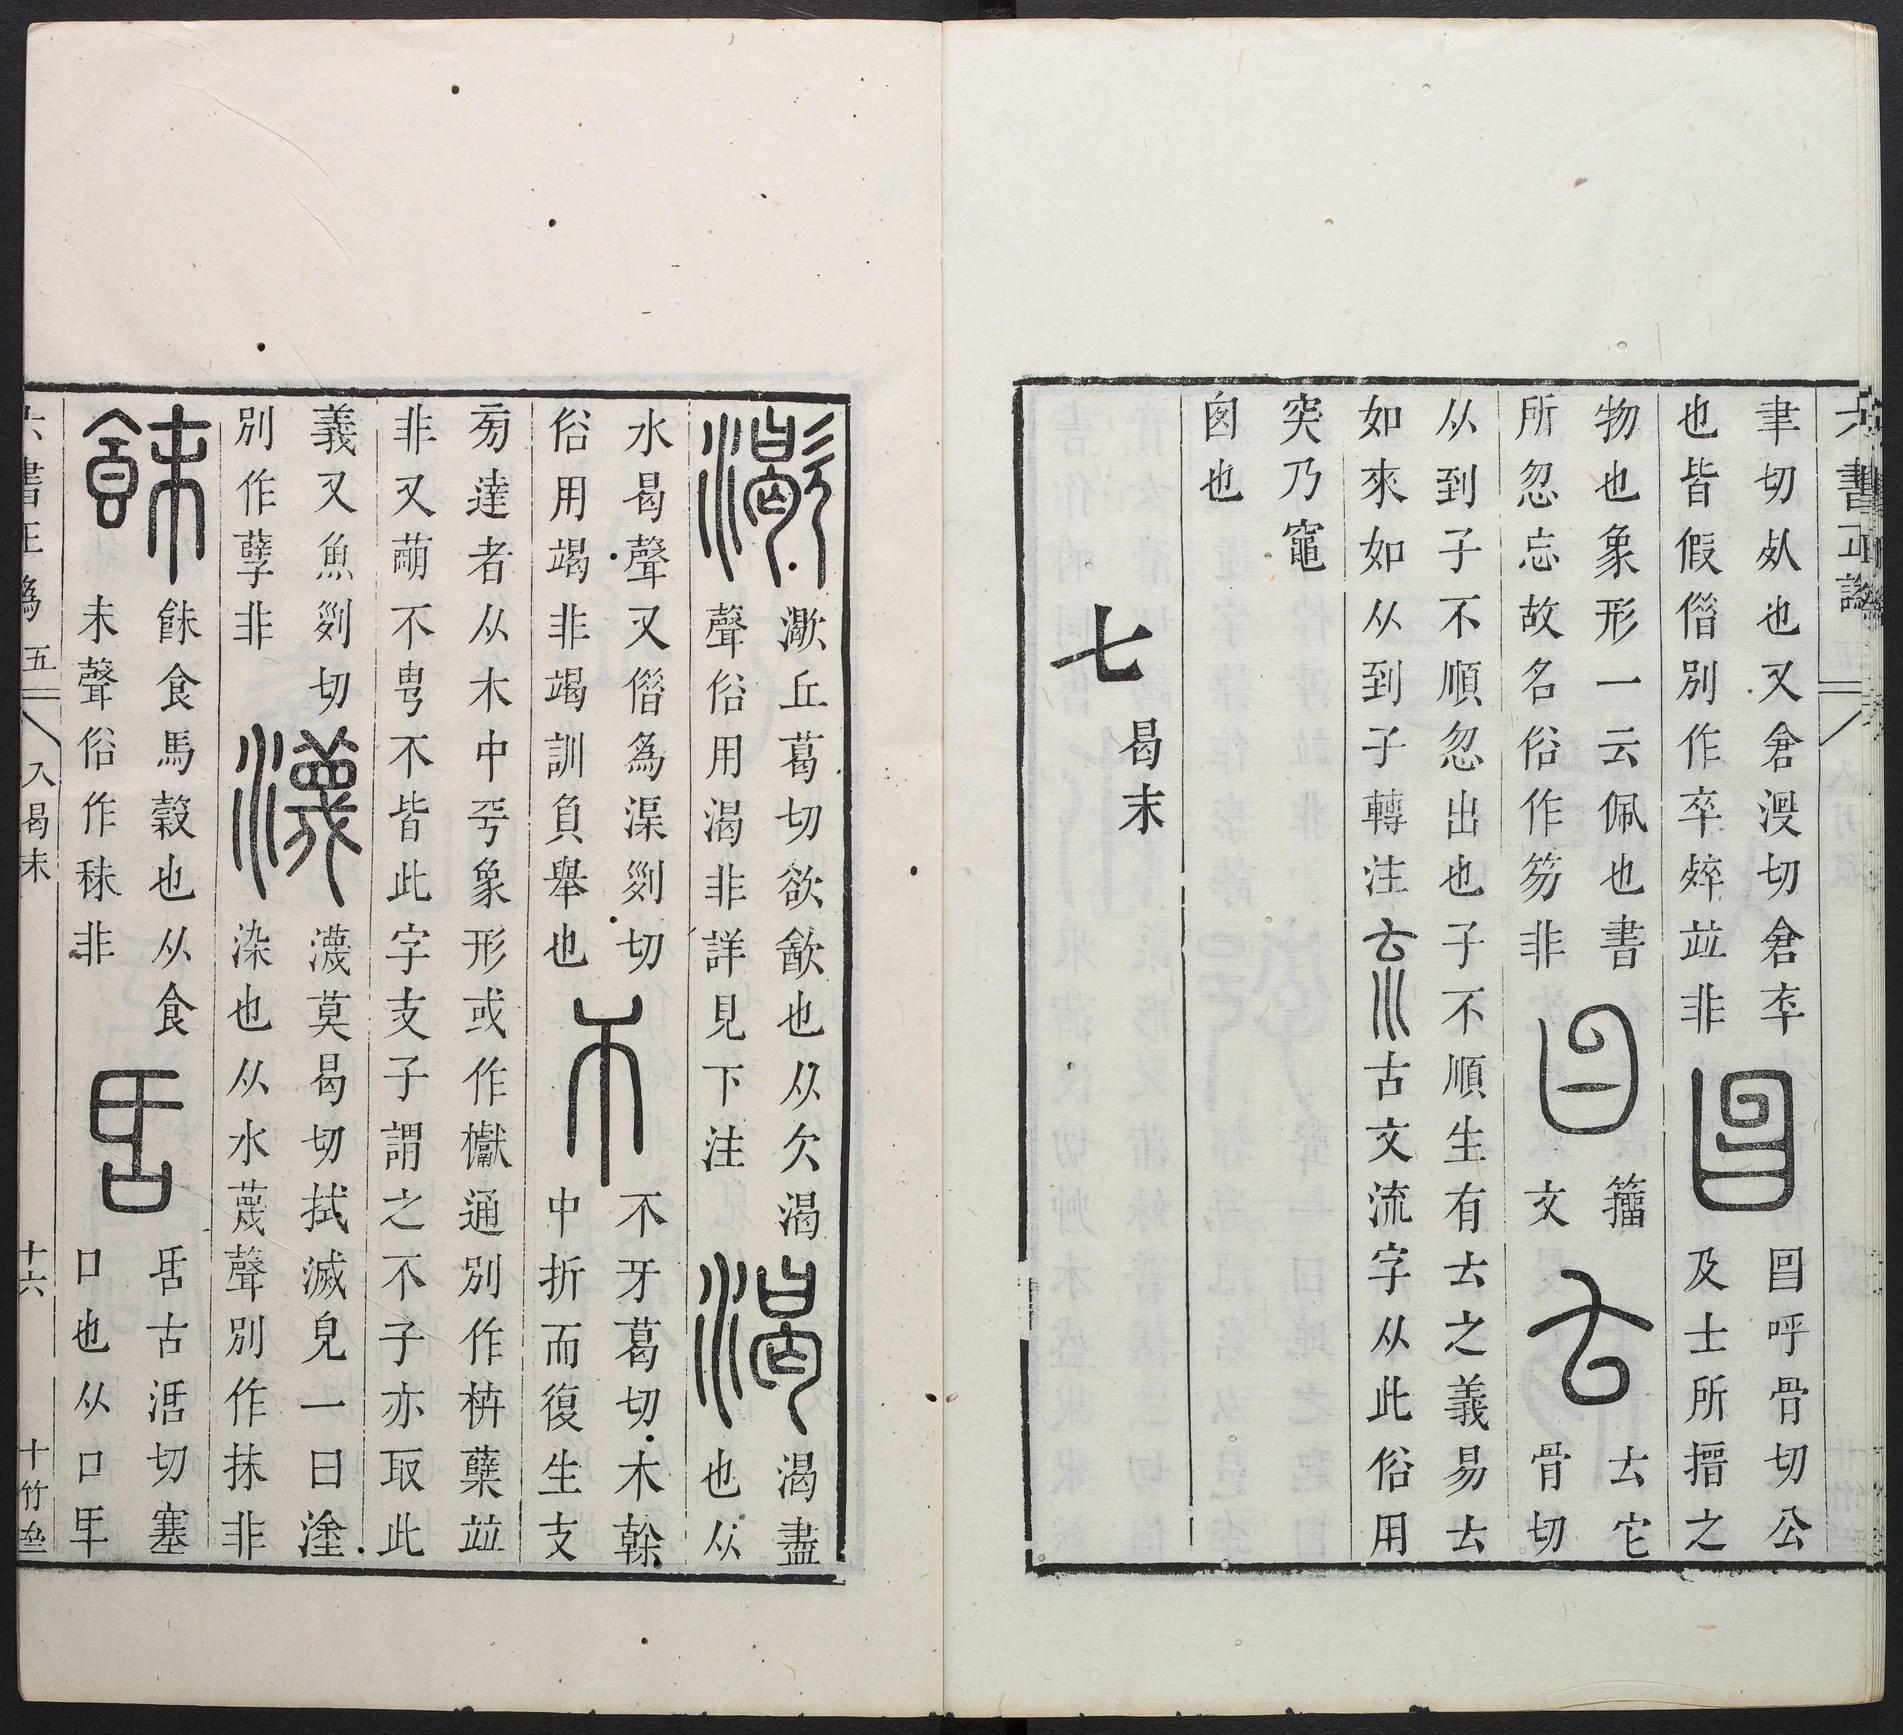 六書正譌
聿切𠩺也又倉没切倉卒
也皆假借別作卒猝竝非
囘呼骨切公
及士所搢之
物也象形一云佩也書
所忽忘故名俗作笏非
籒
文
𠫓它
骨切
从到子不順忽出也子不順生有𠫓之義易𠫓
如來如从到子轉注𠫓㐬古文流字从此俗用
突乃竈
囱也
七
曷末
㵣
㵣丘葛切欲歠也从欠渴
聲俗用渴非詳見下注
渴
渴盡
也从
水曷聲又借爲渠列切
俗用竭非竭訓負舉也
不牙葛切木榦
中折而復生支
㫄達者从木中丂象形或作櫱通別作枿蘖竝
非又萌不𠷎不皆此字支子謂之不子亦取此
義又魚列切
別作孽非
瀎
瀎莫曷切拭滅皃一曰塗
染也从水蔑聲別作抹非
餗
䬴食馬穀也从食
末聲俗作秣非
𠯑
𠯑古活切塞
口也从口氒
六書正譌 五
入曷末
十六
十竹齋